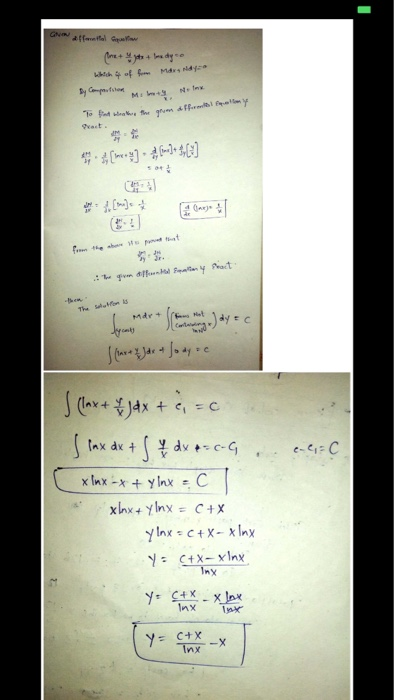 Given differential Equation
(lnx + y/x)dx + lnx dy = 0
which is of form Mdx + Ndy = 0
By Comparison M = lnx + y/x, N = lnx
To find weather the given differential Equation is
Exact.
∂M/∂y = ∂N/∂x
∂M/∂y = ∂/∂y [lnx + y/x] = ∂/∂y [lnx] + ∂/∂y [y/x]
= 0 + 1/x
∂M/∂y = 1/x
∂N/∂x = ∂/∂x [lnx] = 1/x
d/dx (lnx) = 1/x
∂N/∂x = 1/x
from the above it is proved that
∂M/∂y = ∂N/∂x
∴ The given differential Equation is Exact
then
The solution is
∫ Mdx + ∫ (terms Not containing x in N) dy = C
(y const)
∫ (lnx + y/x) dx + ∫ 0 dy = C
∫ (lnx + y/x) dx + c₁ = C
∫ lnx dx + ∫ y/x dx = C - C₁
c - c₁ = C
x lnx - x + y lnx = C
x lnx + y lnx = C + x
y lnx = C + x - x lnx
y = C + x - x lnx / lnx
y = C + x / lnx - x lnx / lnx
y = C + x / lnx - x